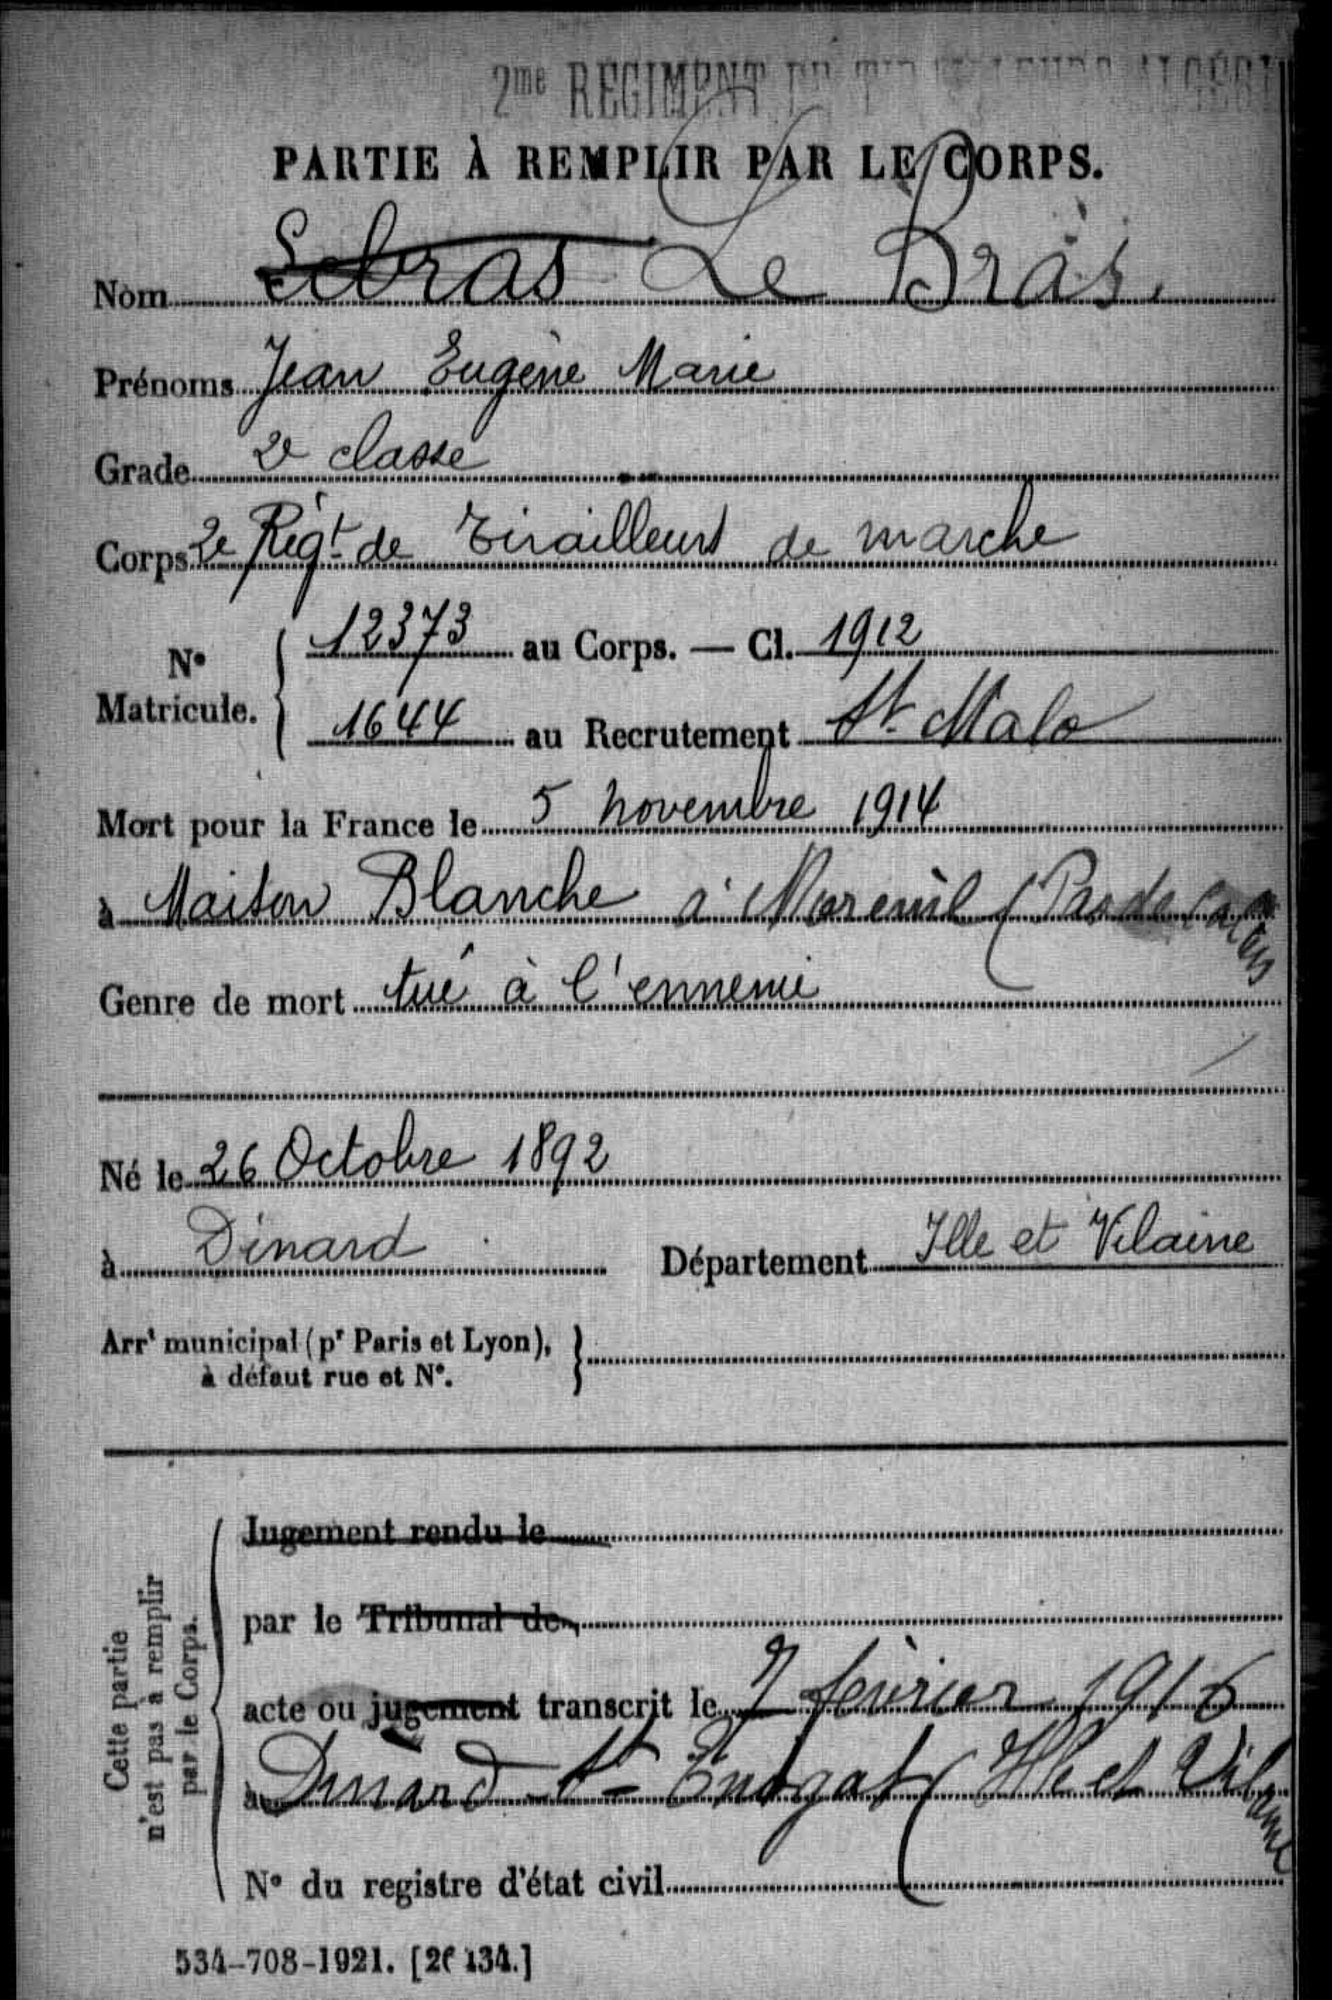 2me REGIMENT DE TIRAILLEURS ALGÉRI
PARTIE À REMPLIR PAR LE CORPS.
Nom Lebras Le Bras.
Prénoms Jean Eugène Marie
Grade 2e classe
Corps 2e Régt de Tirailleurs de marche
No Matricule. 12373 au Corps. — Cl. 1912
1644 au Recrutement St Malo
Mort pour la France le 5 novembre 1914
à Maison Blanche à Mareuil (Pas de Calais
Genre de mort tué à l'ennemi
Né le 26 Octobre 1892
à Dinard Département Ille et Vilaine
Arrt municipal (pr Paris et Lyon),
à défaut rue et No.
Cette partie
n'est pas à remplir
par le Corps.
Jugement rendu le
par le Tribunal de
acte ou jugement transcrit le 7 février 1916
à Dinard St Enogat (Ille et Vilaine
No du registre d'état civil
534-708-1921. [26134.]